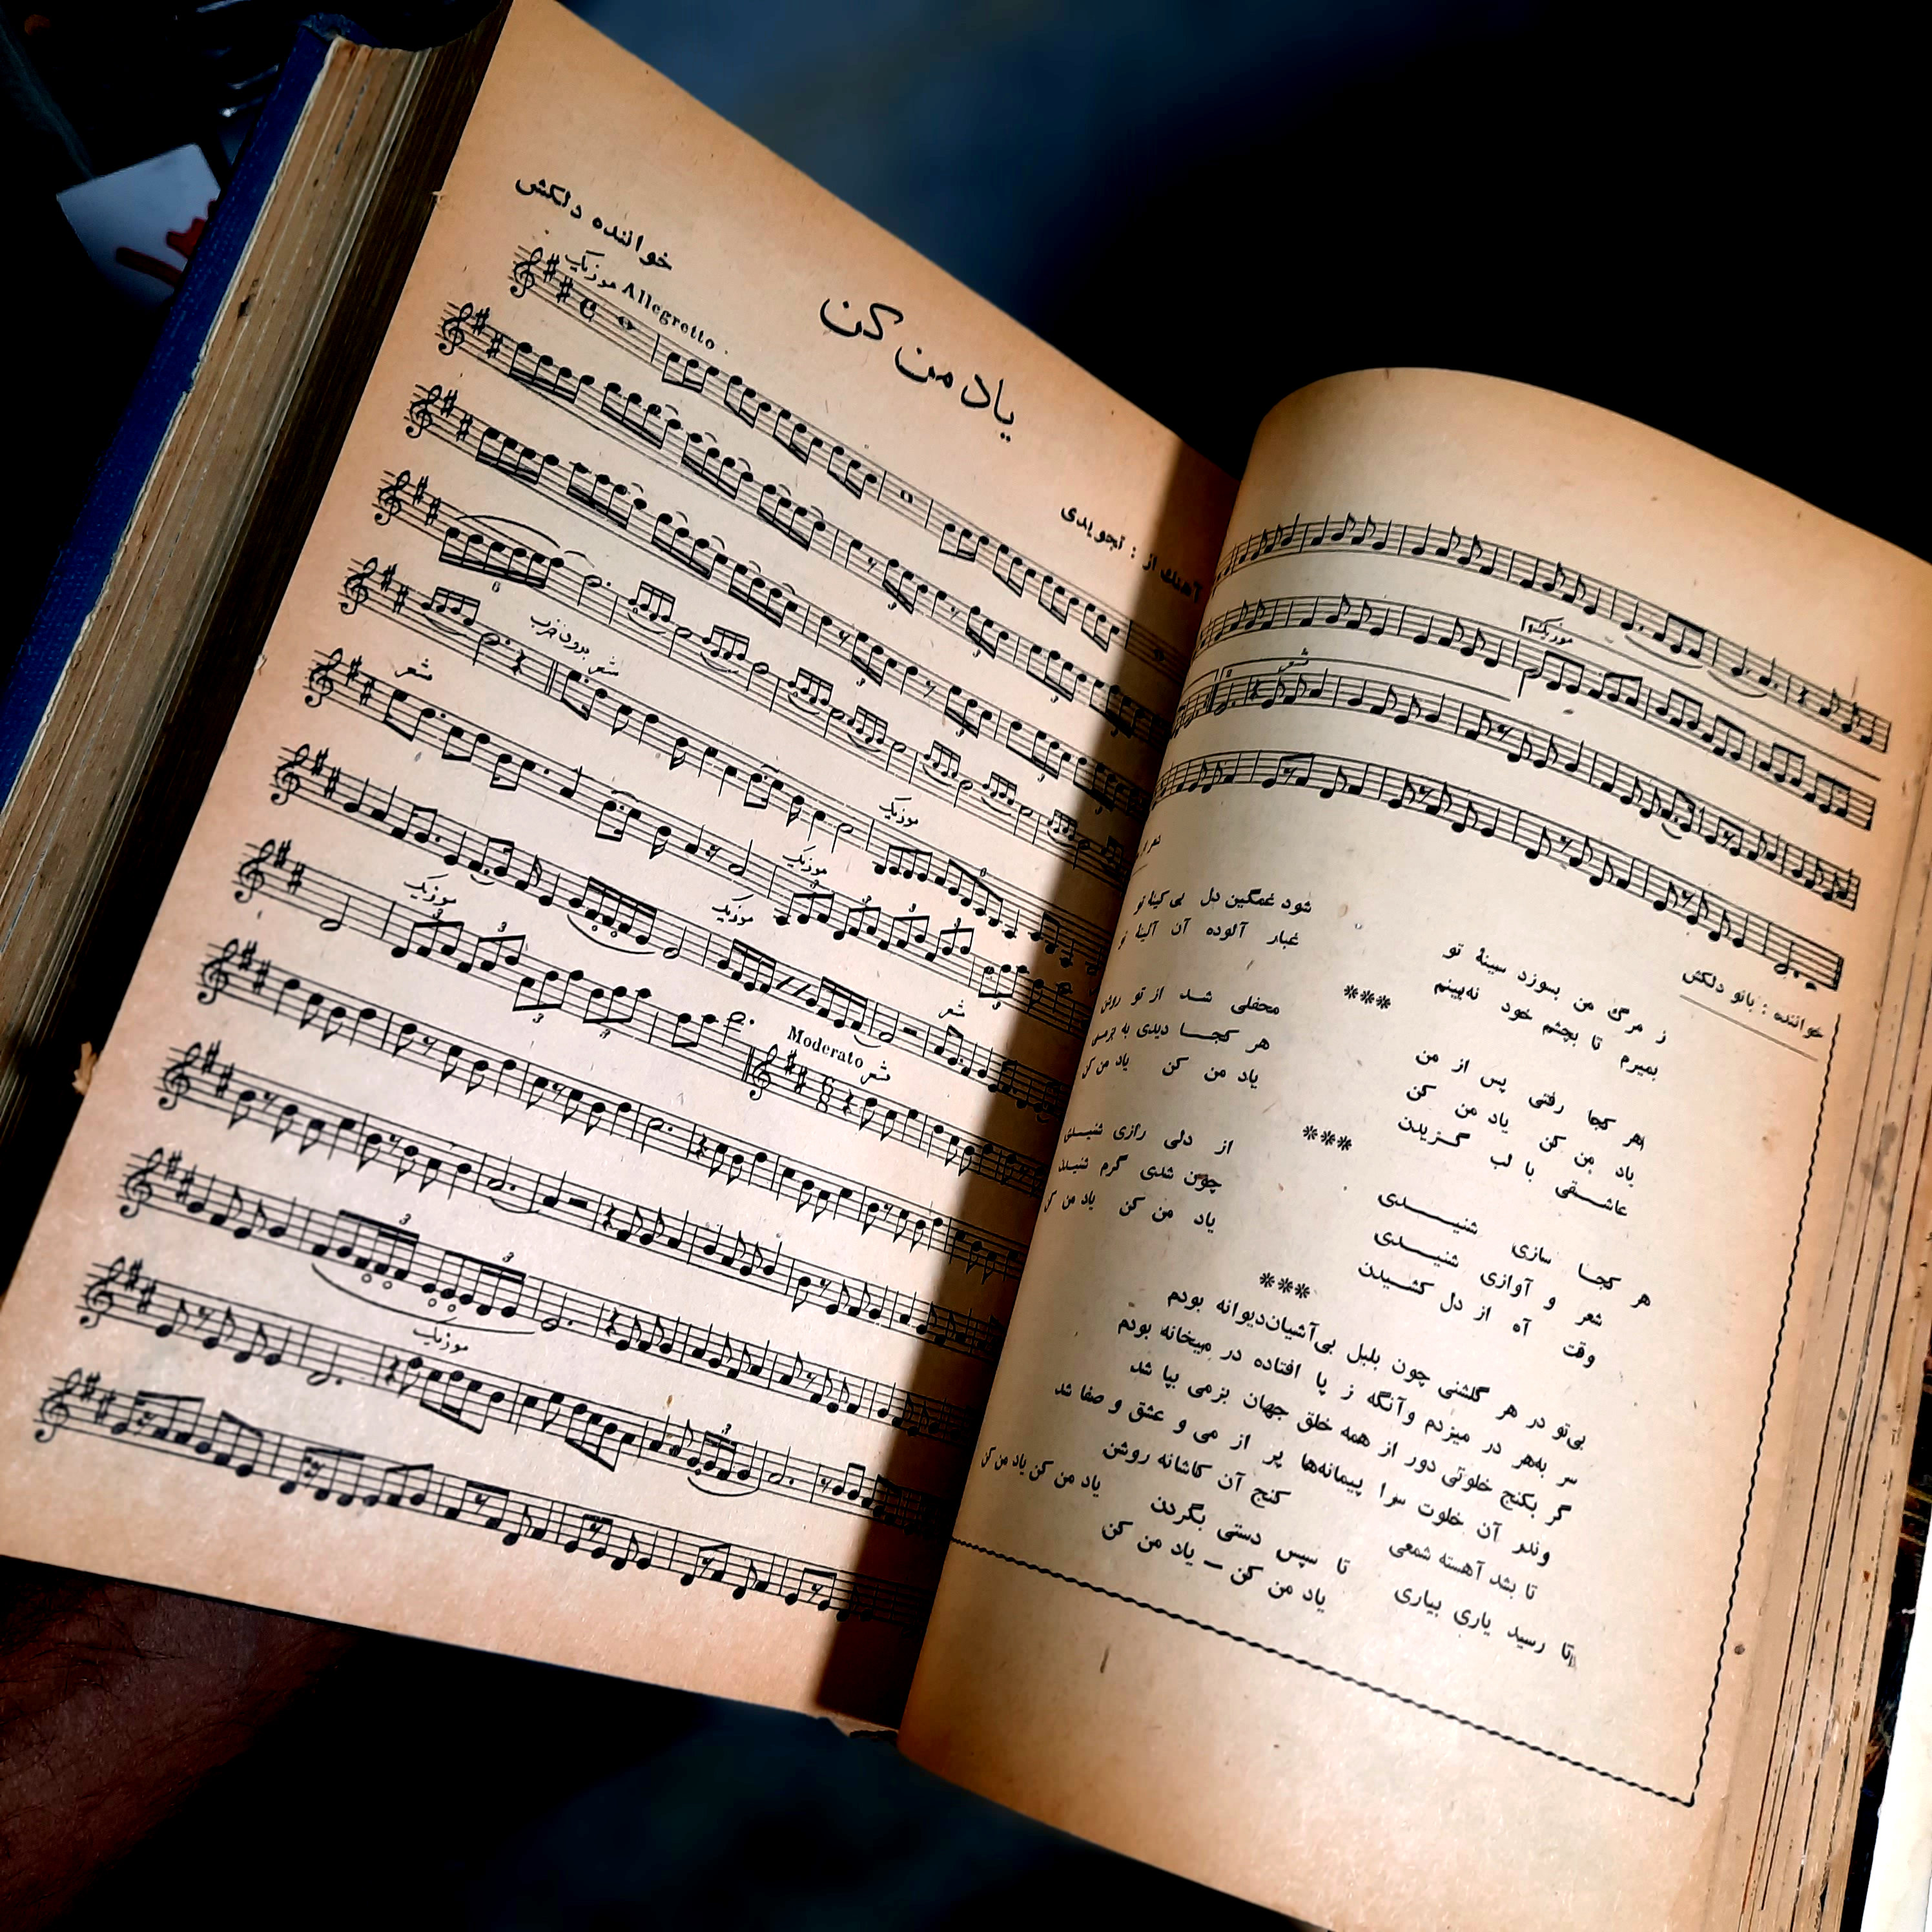 یاد من کن
خواننده دلکش
آهنگ از : تجویدی
Allegretto موزیک
شعر بدون ضرب
موزیک
شعر
موزیک
موزیک
موزیک
شعر
Moderato شعر
موزیک
موزیک
شعر
خواننده : بانو دلکش
ز مرگ من بسوزد سینهٔ تو
شود غمگین دل بی کینهٔ تو
بمیرم تا بچشم خود نه‌بینم
غبار آلوده آن آئینهٔ تو
***
هر کجا رفتی پس از من
محفلی شد از تو روشن
یاد من کن یاد من کن
هر کجا دیدی به بزمی
عاشقی با لب گزیدن
یاد من کن یاد من کن
***
هر کجا سازی شنیدی
از دلی رازی شنیدی
شعر و آوازی شنیدی
چون شدی گرم شنیدن
وقت آه از دل کشیدن
یاد من کن یاد من کن
***
بی‌تو در هر گلشنی چون بلبل بی‌آشیان‌دیوانه بودم
سر به‌هر در میزدم وآنگه ز پا افتاده در میخانه بودم
گر بکنج خلوتی دور از همه خلق جهان بزمی بپا شد
وندر آن خلوت سرا پیمانه‌ها پر از می و عشق و صفا شد
تا بشد آهسته شمعی کنج آن کاشانه روشن
یاد من کن یاد من کن
تا رسید یاری بیاری تا سپس دستی بگردن
یاد من کن — یاد من کن